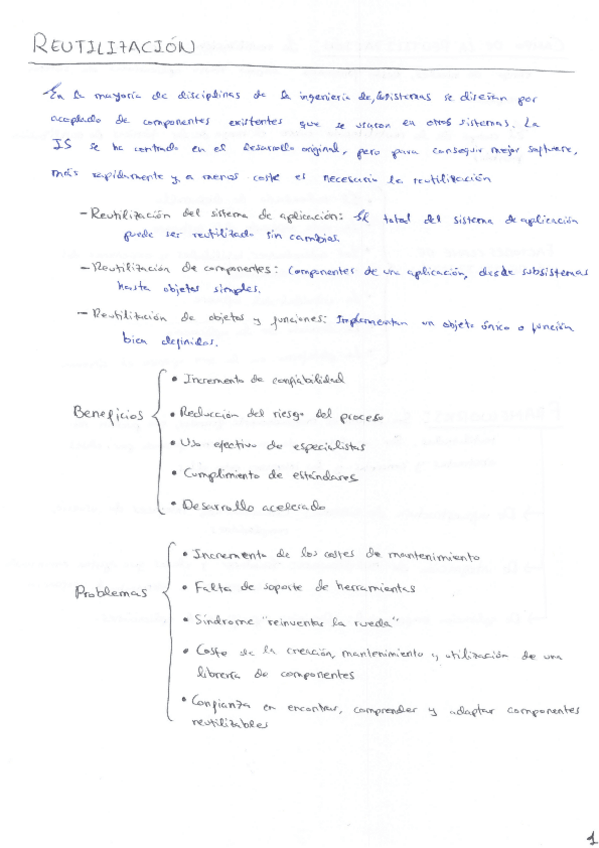 REUTILIZACIÓN
En la mayoría de disciplinas de la ingeniería de, los sistemas se diseñan por
acoplado de componentes existentes que se usaron en otros sistemas. La
IS se ha centrado en el desarrollo original, pero para conseguir mejor software,
más rapidamente y a menos coste es necesario la reutilización
- Reutilización del sistema de aplicación: El total del sistema de aplicación
puede ser reutilizado sin cambios.
- Reutilización de componentes: Componentes de una aplicación, desde subsistemas
hasta objetos simples.
- Reutilización de objetos y funciones: Implementan un objeto único o función
bien definidos.
Beneficios
• Incremento de confiabilidad
• Reducción del riesgo del proceso
• Uso efectivo de especialistas
• Cumplimiento de estándares
• Desarrollo acelerado
Problemas
• Incremento de los costes de mantenimiento
• Falta de soporte de herramientas
• Síndrome "reinventar la rueda"
• Coste de la creación, mantenimiento y utilización de una
librería de componentes
• Confianza en encontrar, comprender y adaptar componentes
reutilizables
1